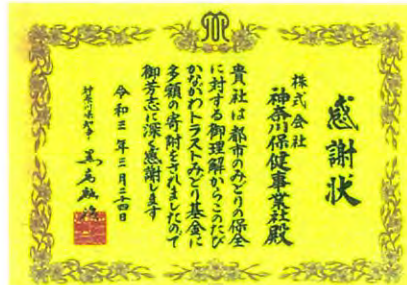 感謝状
株式会社
神奈川保健事業社殿
貴社は都市のみどりの保全
に対する御理解からこのたび
かながわトラストみどり基金に
多額の寄附をされましたので
御芳志に深く感謝します
令和三年三月二四日
神奈川県知事 黒岩祐治